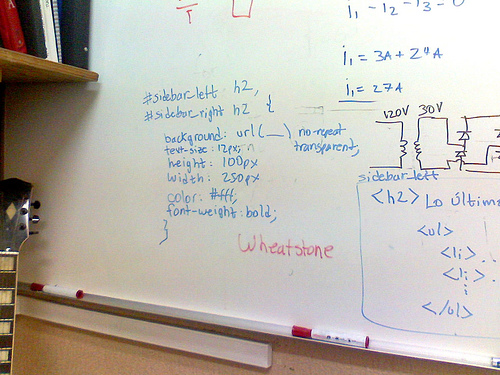 i₁ - i₂ - i₃ = 0
i₁ = 3A + 24A
i₁ = 27A
#sidebar_left h2,
#sidebar_right h2 {
background: url(__) no-repeat
transparent;
text-size: 12px;
height: 100px
width: 250px
color: #fff;
font-weight: bold;
}
Wheatstone
120V 30V
sidebar_left
<h2> Lo Última
<ul>
<li>.
<li>.
</ul>